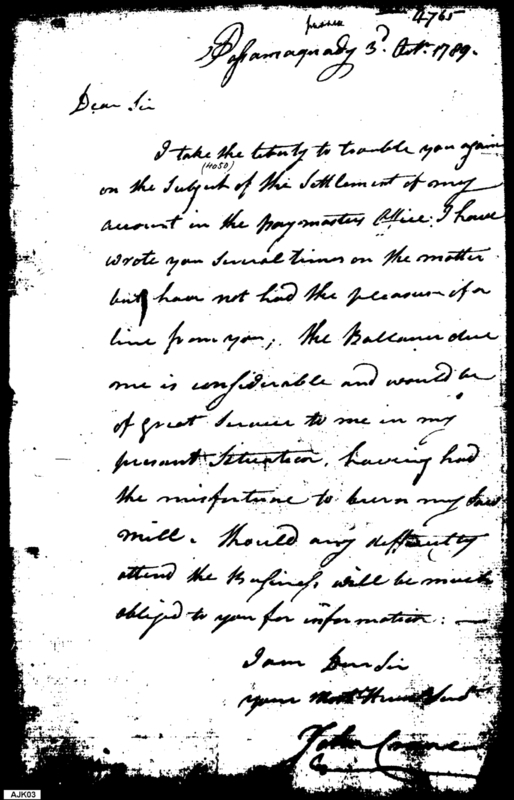 4765
Passamaquady 3d. Octr. 1789.
Dear Sir
I take the liberty to trouble you again
(4050)
on the Subject of the Settlement of my
account in the paymasters office. I have
wrote you Several times on the matter
but have not had the pleasure of a
line from you; the Ballance due
me is considerable and would be
of great Service to me in my
present Situation, having had
the misfortune to burn my Saw
mill. Should any difficulty
attend the Business will be much
obliged to you for information: —
I am Dear Sir
your Most. Humbl Servt
John Crane
AJK03